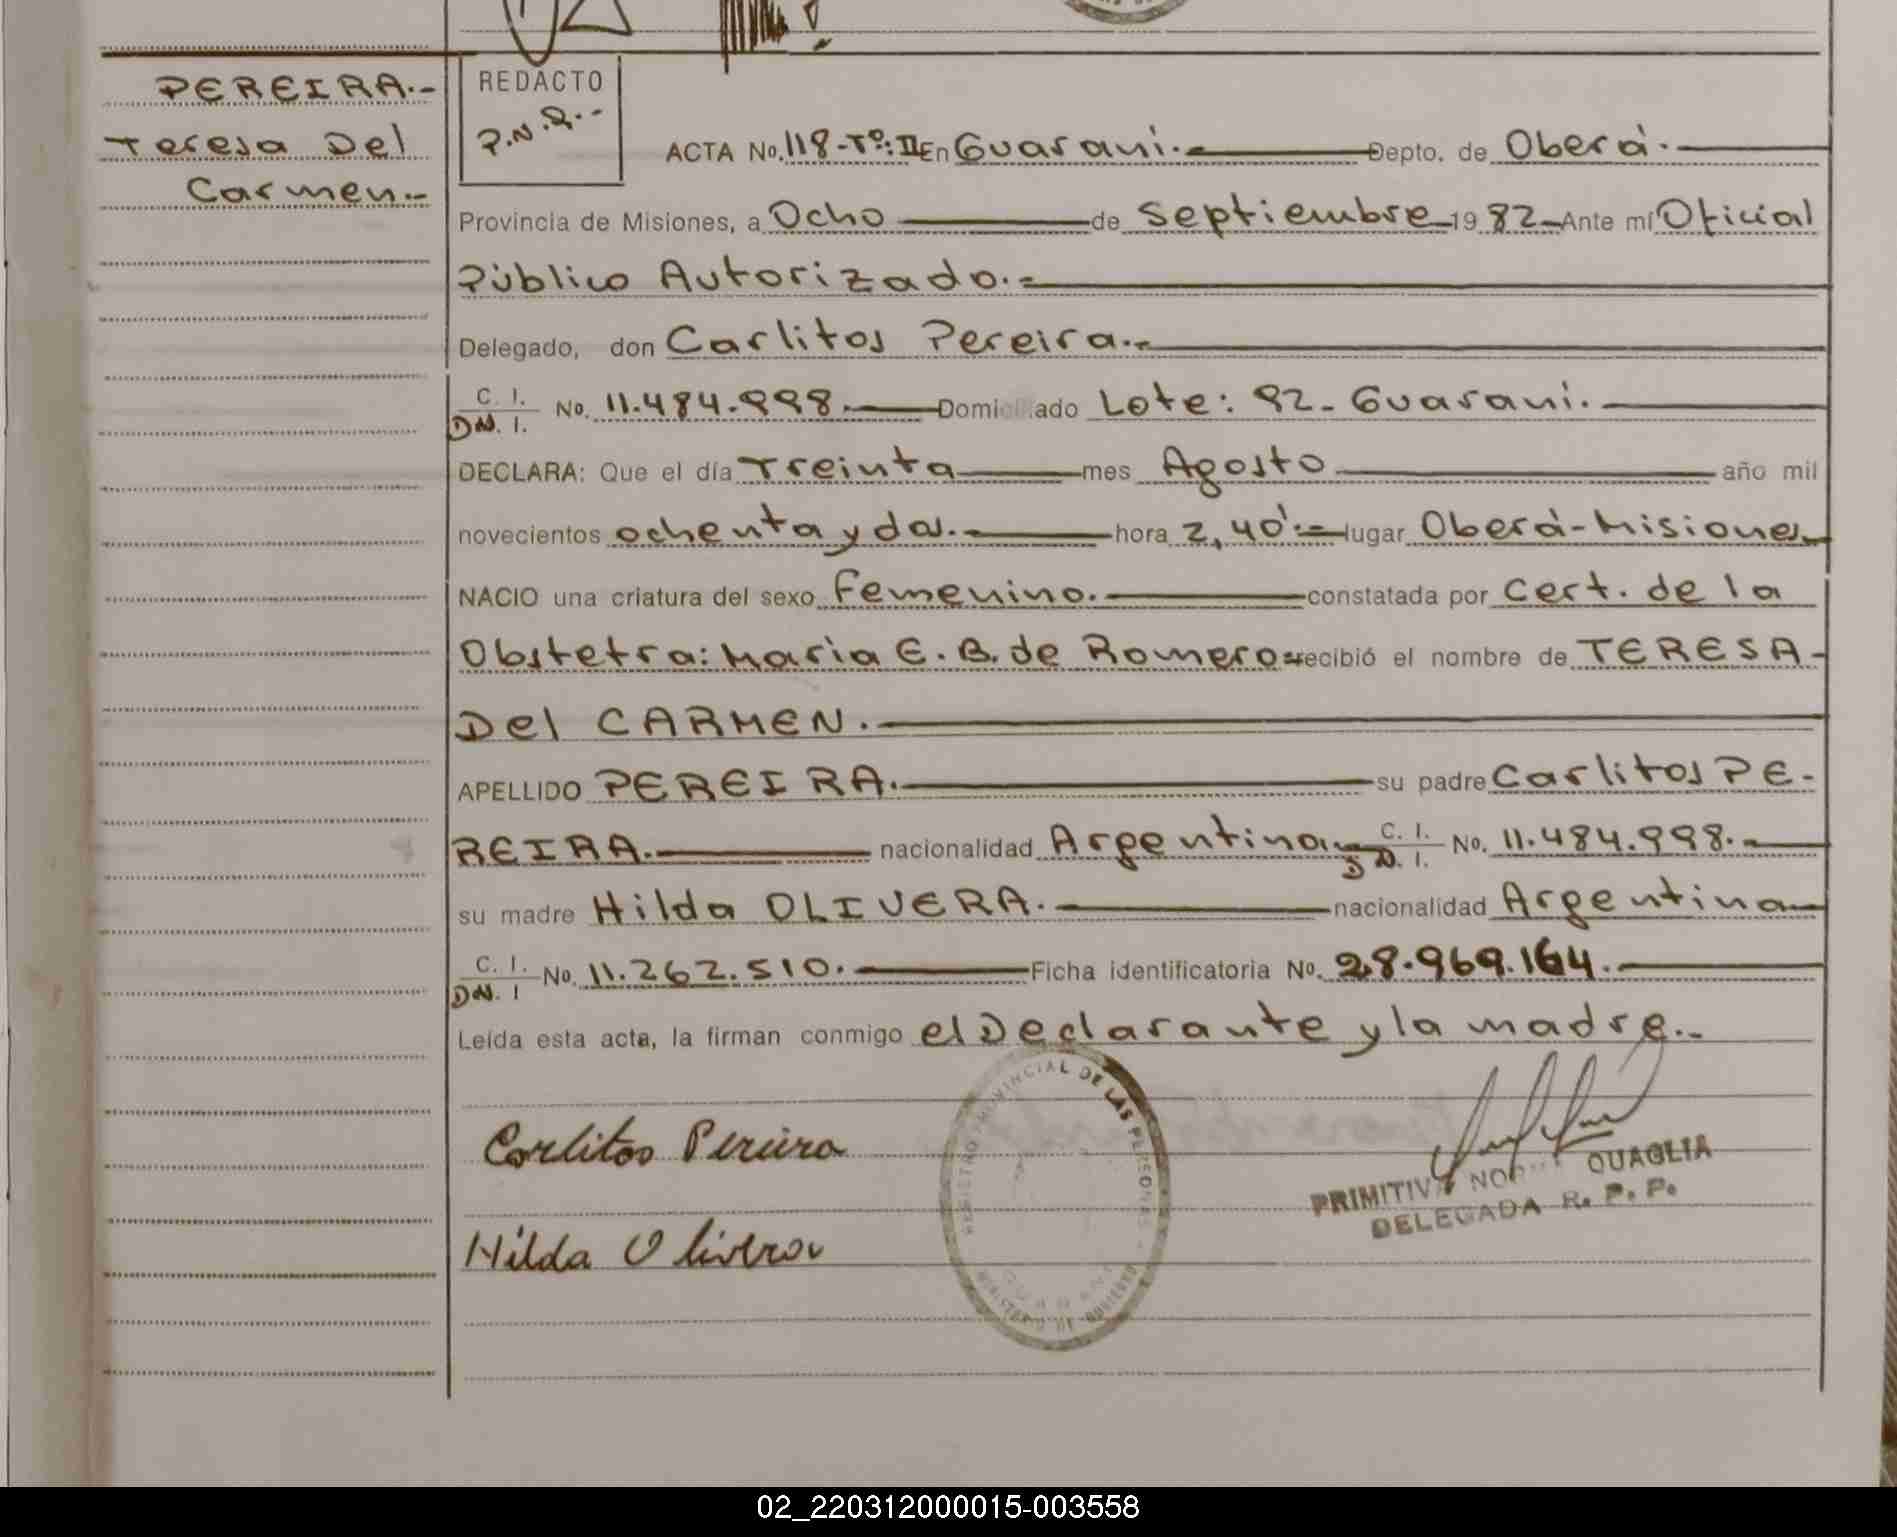 PEREIRA.-
Teresa Del
Carmen.-
REDACTO
P.N.Q.--
ACTA No. 118-Tº: II En Guaraní. Depto. de Oberá.
Provincia de Misiones, a Ocho de Septiembre 19 82 Ante mí Oficial
Público Autorizado.-
Delegado, don Carlitos Pereira.-
C. I.
DN. I. No. 11.484.998. Domiciliado Lote: 92- Guaraní.
DECLARA: Que el día Treinta mes Agosto año mil
novecientos ochenta y dos. hora 2,40'.- lugar Oberá-Misiones
NACIO una criatura del sexo Femenino. constatada por Cert. de la
Obstetra: Maria E. B. de Romero recibió el nombre de TERESA-
Del CARMEN.
APELLIDO PEREIRA. su padre Carlitos PE-
REIRA. nacionalidad Argentina C. I.
D N. I. No. 11.484.998.
su madre Hilda OLIVERA. nacionalidad Argentina
C. I.
DN. I No. 11.262.510. Ficha identificatoria No. 28.969.164.
Leída esta acta, la firman conmigo el Declarante y la madre.-
REGISTRO PROVINCIAL DE LAS PERSONAS
MINISTERIO DE GOBIERNO
Carlitos Pereira
PRIMITIVA QUAGLIA
DELEGADA R. P. P.
Hilda Olivera
02_220312000015-003558